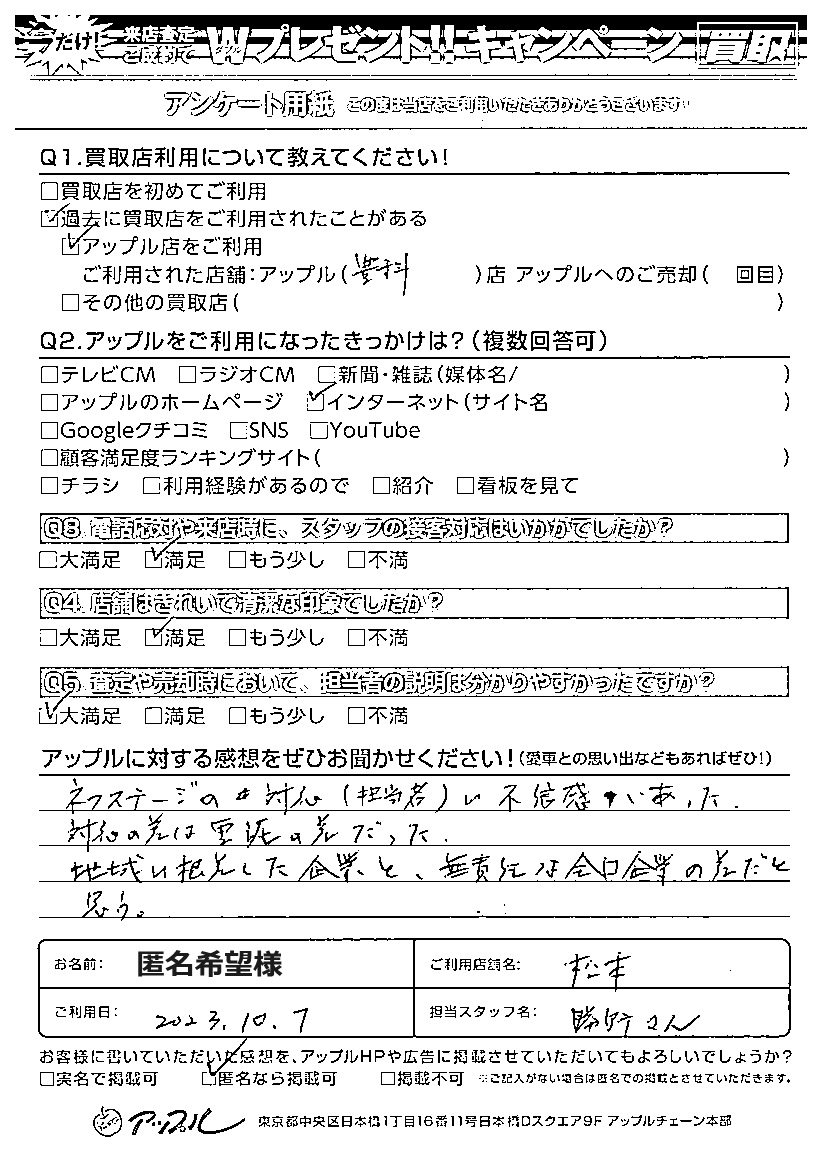 つだけ! 来店査定 ご成約で Wプレゼント!!キャンペーン 買取
アンケート用紙 この度は当店をご利用いただきありがとうございます!
Q1.買取店利用について教えてください!
□買取店を初めてご利用
☑過去に買取店をご利用されたことがある
☑アップル店をご利用
ご利用された店舗:アップル( 豊科 )店 アップルへのご売却( 回目)
□その他の買取店( )
Q2.アップルをご利用になったきっかけは?(複数回答可)
□テレビCM □ラジオCM □新聞・雑誌(媒体名/ )
□アップルのホームページ ☑インターネット(サイト名 )
□Googleクチコミ □SNS □YouTube
□顧客満足度ランキングサイト( )
□チラシ □利用経験があるので □紹介 □看板を見て
Q3. 電話応対や来店時に、スタッフの接客対応はいかがでしたか?
□大満足 ☑満足 □もう少し □不満
Q4. 店舗はきれいで清潔な印象でしたか?
□大満足 ☑満足 □もう少し □不満
Q5. 査定や売却時において、担当者の説明は分かりやすかったですか?
☑大満足 □満足 □もう少し □不満
アップルに対する感想をぜひお聞かせください!(愛車との思い出などもあればぜひ!)
ネクステージの 対応(担当者)に不信感 があった.
対応の差は雲泥の差だった.
地域に根差した企業と、無責任な全国企業の差だと
思う。
お名前: 匿名希望様 ご利用店舗名: 松本
ご利用日: 2023.10.7 担当スタッフ名: 勝野さん
お客様に書いていただいた感想を、アップルHPや広告に掲載させていただいてもよろしいでしょうか?
□実名で掲載可 ☑匿名なら掲載可 □掲載不可 ※ご記入がない場合は匿名での掲載とさせていただきます。
アップル 東京都中央区日本橋1丁目16番11号日本橋Dスクエア9F アップルチェーン本部